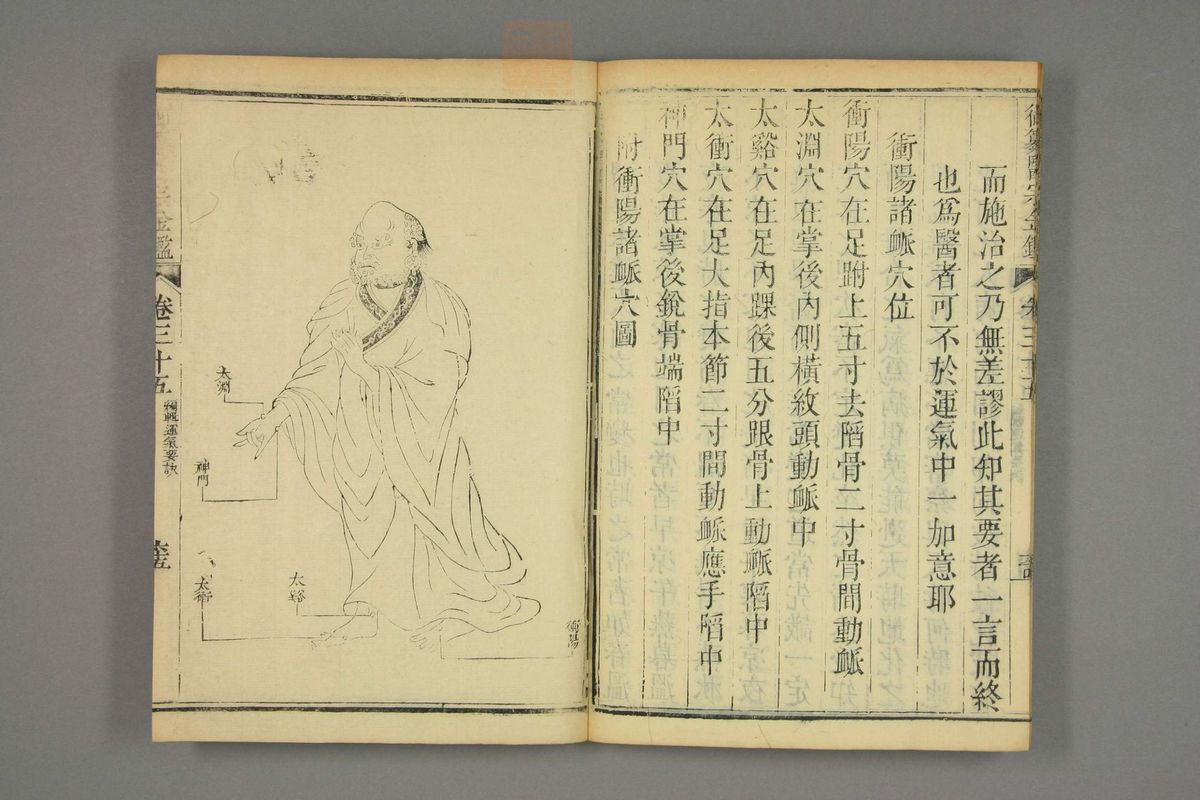 御纂醫宗金鑑 卷三十五
而施治之乃無差謬此知其要者一言而終
也為醫者可不於運氣中一加意耶
衝陽諸脈穴位
衝陽穴在足跗上五寸去陷骨二寸骨間動脈
太淵穴在掌後內側橫紋頭動脈中
太谿穴在足內踝後五分跟骨上動脈陷中
太衝穴在足大指本節二寸間動脈應手陷中
神門穴在掌後銳骨端陷中
附衝陽諸脈穴圖
衝陽
太谿
太淵
神門
太衝
宗金鑑 卷三十五 編輯運氣要訣